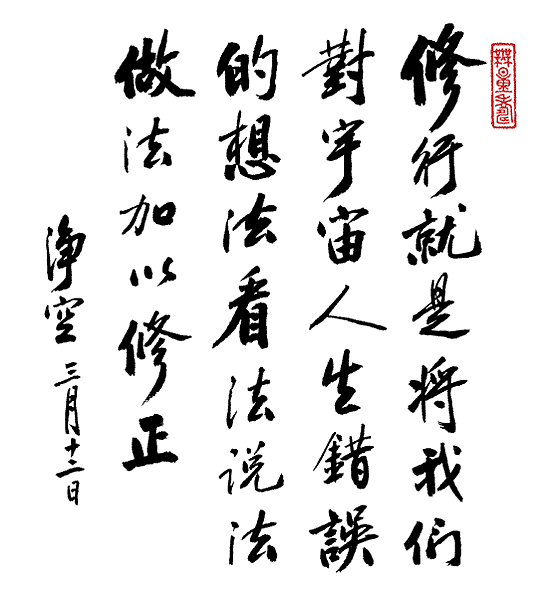 修行就是將我们
對宇宙人生錯誤
的想法看法説法
做法加以修正
淨空
三月十二日